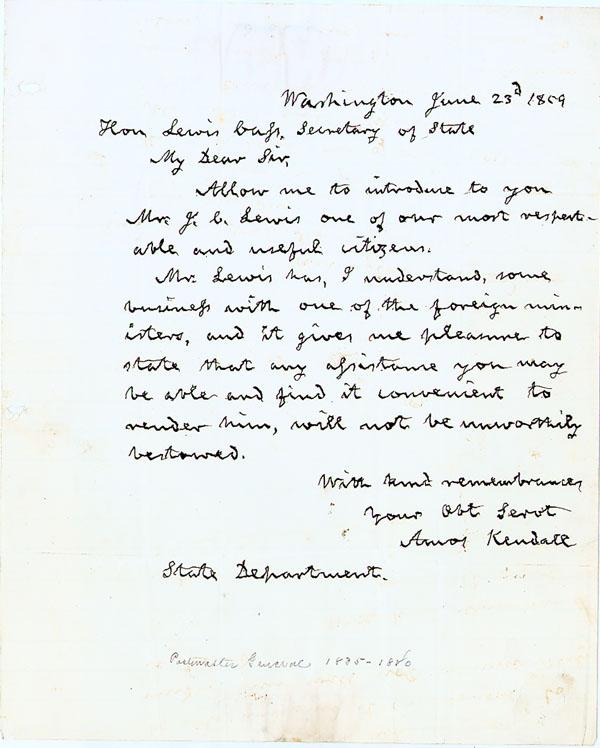 Washington June 23d 1859
Hon Lewis Cass, Secretary of State
My Dear Sir,
Allow me to introduce to you
Mr. J. C. Lewis one of our most respect-
able and useful citizens.
Mr. Lewis has, I understand, some
business with one of the foreign min-
isters, and it gives me pleasure to
state that any assistance you may
be able and find it convenient to
render him, will not be unworthily
bestowed.
With kind remembrances
Your Obt Servt
Amos Kendall
State Department.
Postmaster General 1835-1840